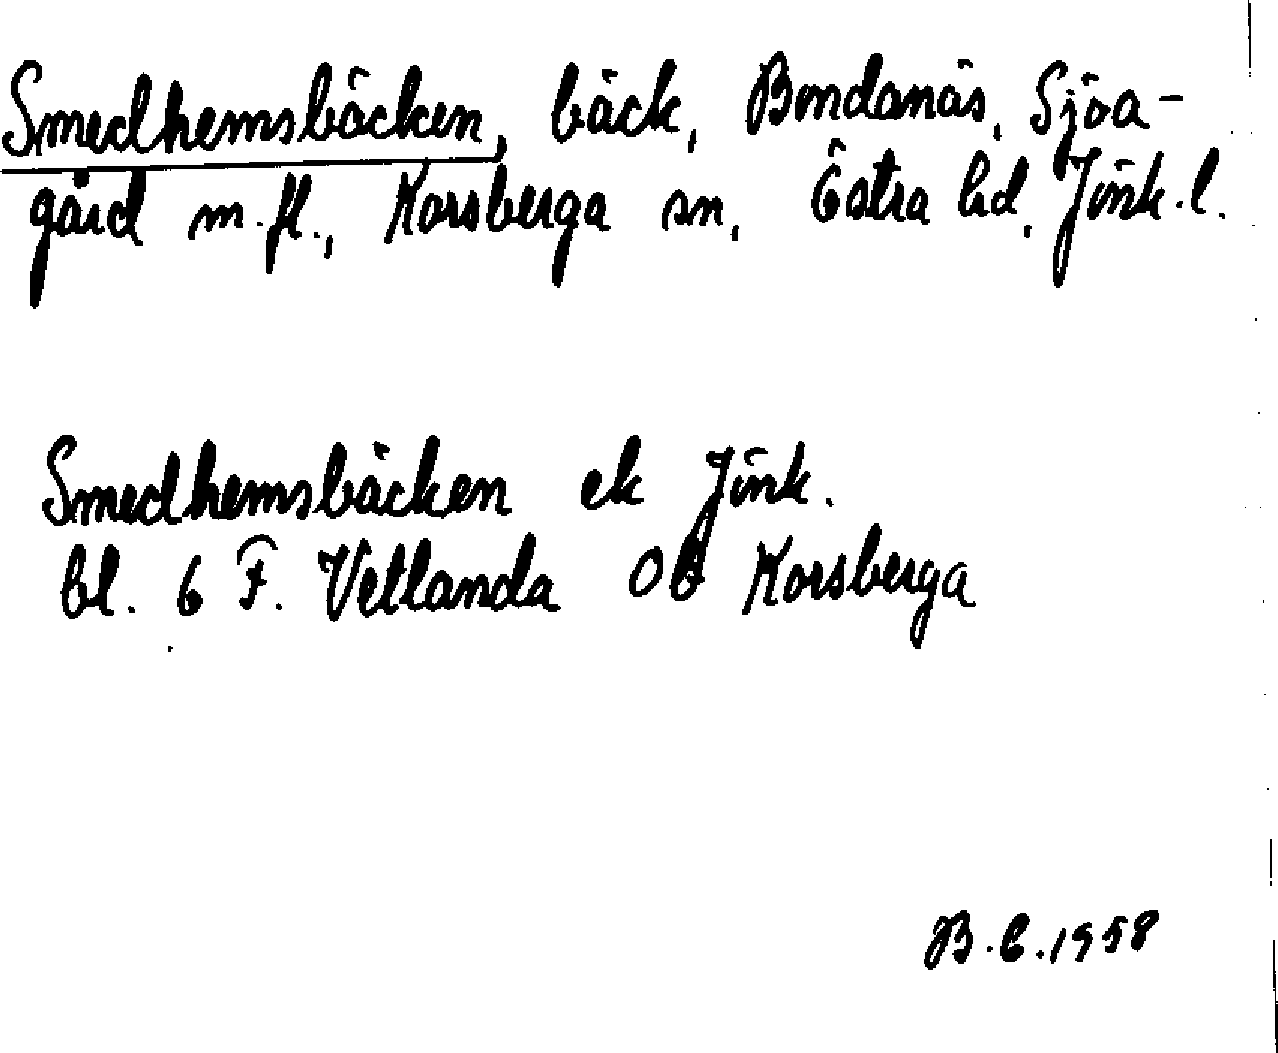 Smedhemsbäcken, bäck, Bondanäs, Sjöa-
gård m.fl., Korsberga sn, Östra hd, Jönk.l.
Smedhemsbäcken ek Jönk.
bl. 6 F. Vetlanda OB Korsberga
B.E.1958